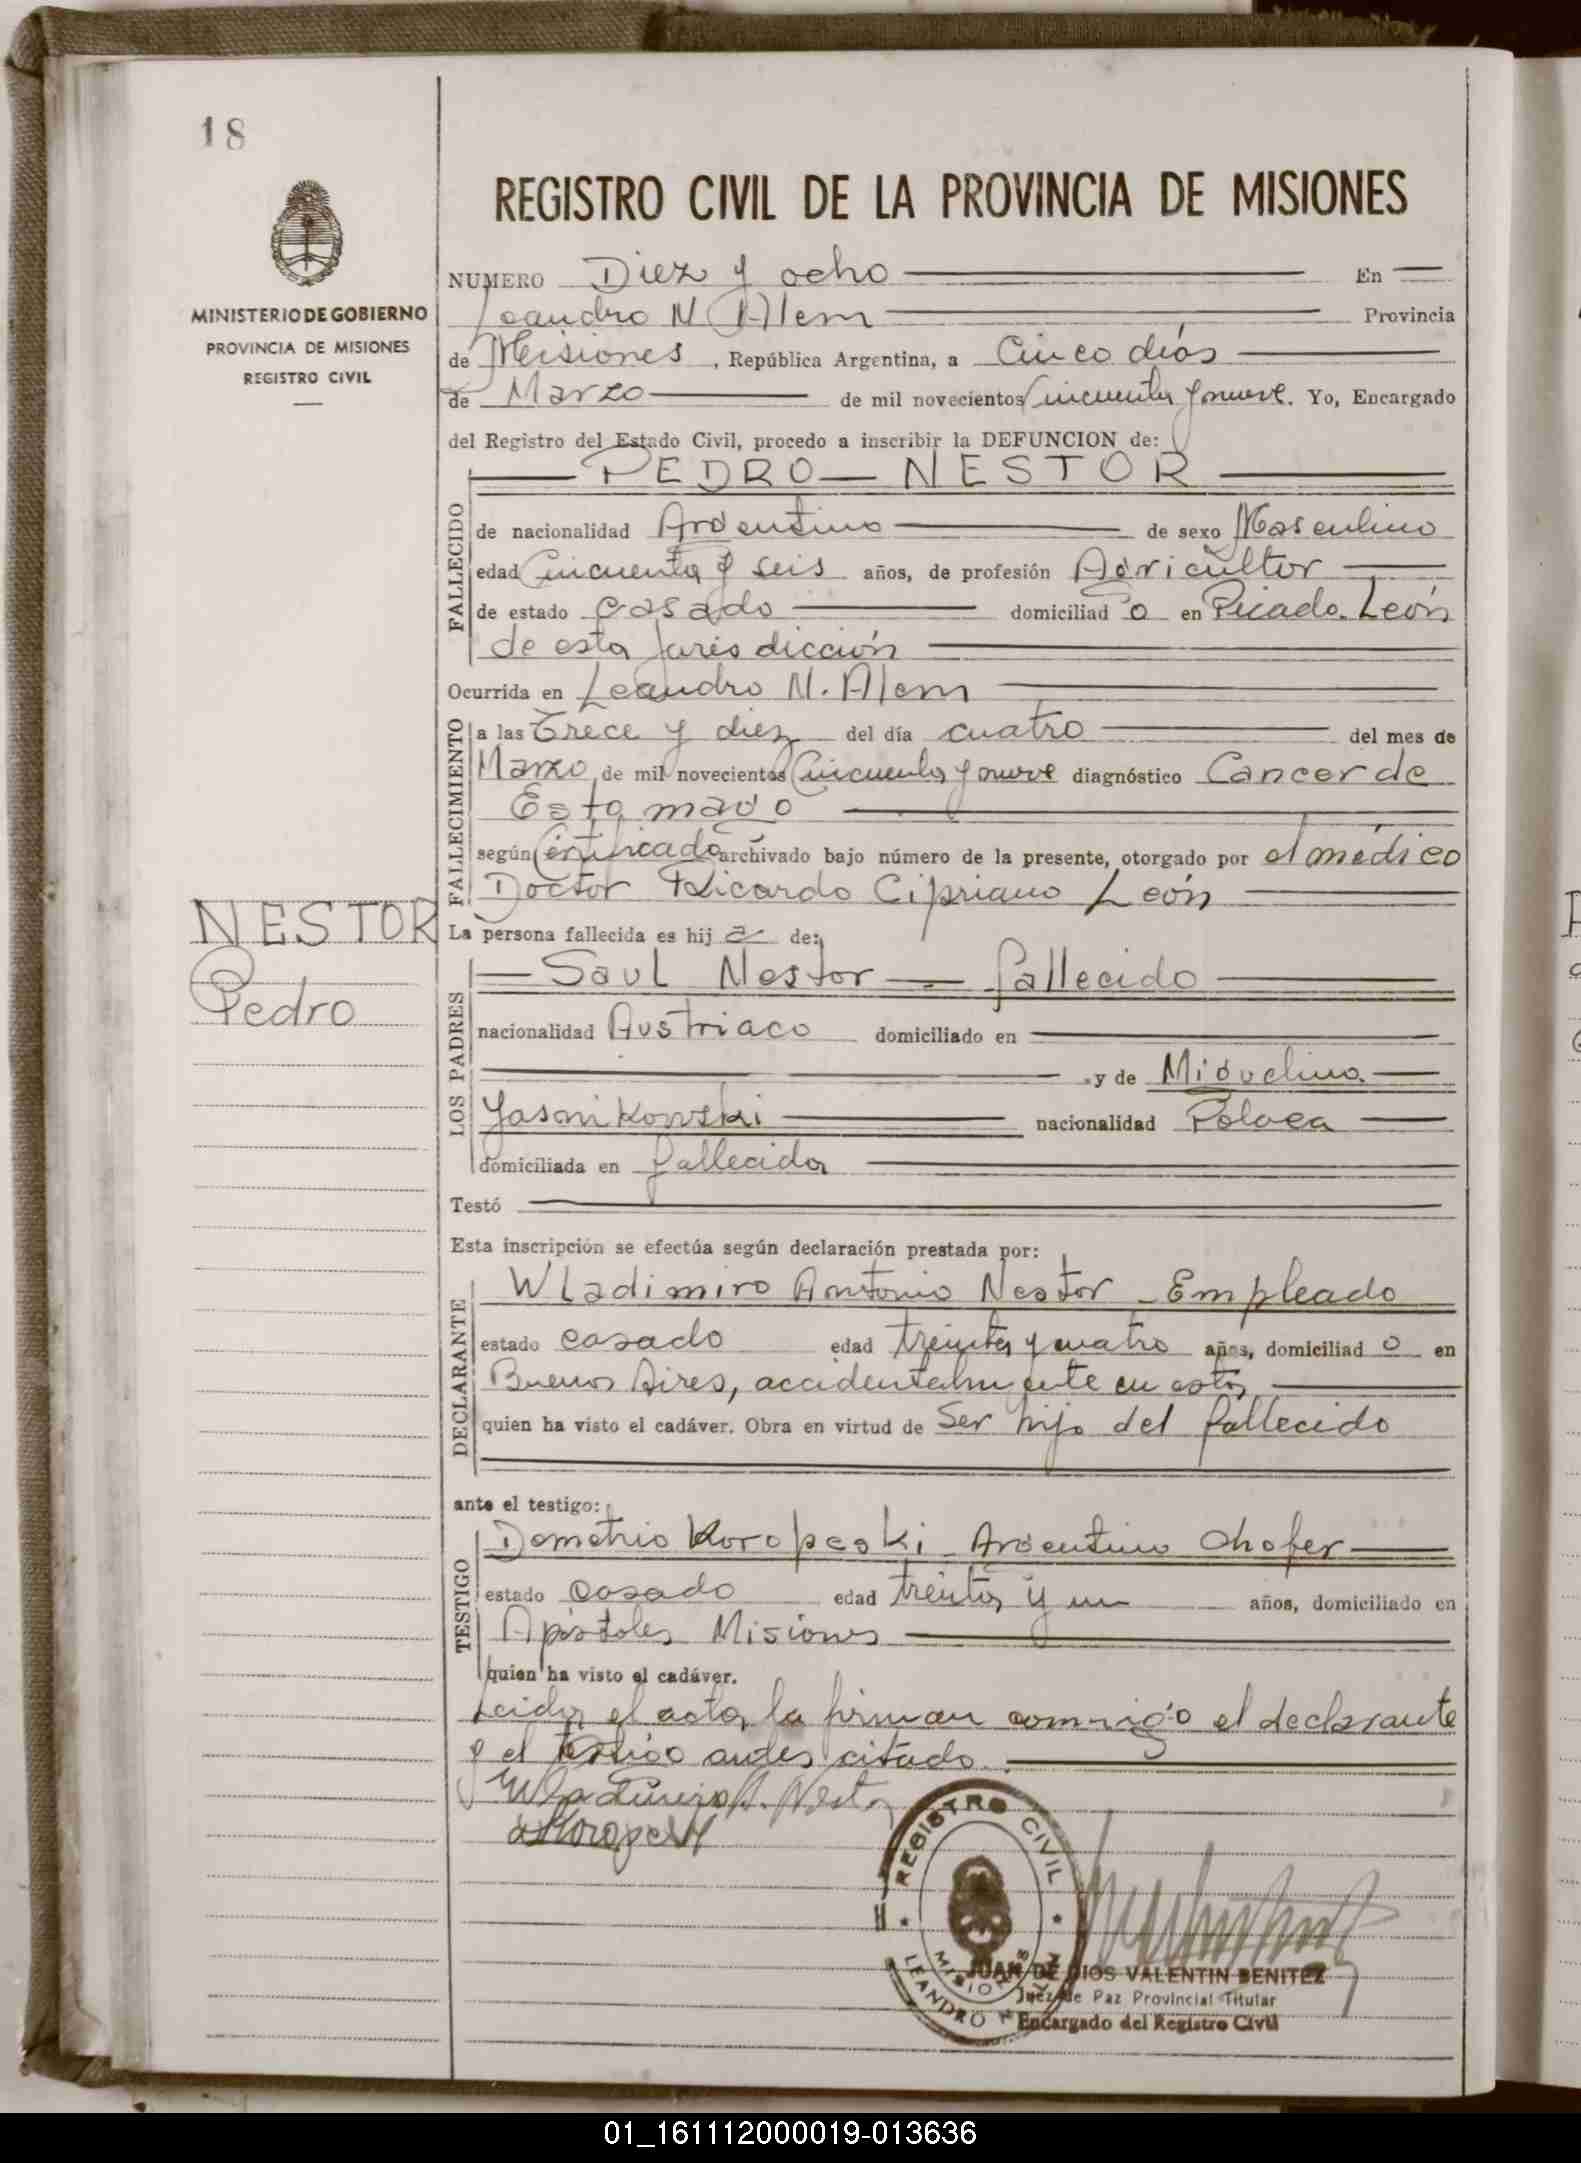 18
MINISTERIO DE GOBIERNO
PROVINCIA DE MISIONES
REGISTRO CIVIL
REGISTRO CIVIL DE LA PROVINCIA DE MISIONES
NUMERO Diez y ocho En
Leandro N Alem Provincia
de Misiones, República Argentina, a Cinco días
de Marzo de mil novecientos Cincuenta y nueve. Yo, Encargado
del Registro del Estado Civil, procedo a inscribir la DEFUNCION de:
PEDRO NESTOR
FALLECIDO
de nacionalidad Argentino de sexo Masculino
edad Cincuenta y seis años, de profesión Agricultor
de estado casado domiciliad o en Picada León
de esta Jurisdicción
Ocurrida en Leandro N. Alem
FALLECIMIENTO
a las Trece y diez del día cuatro del mes de
Marzo de mil novecientos Cincuenta y nueve diagnóstico Cancer de
Estomago
según Certificado archivado bajo número de la presente, otorgado por el médico
Doctor Ricardo Cipriano León
NESTOR
Pedro
La persona fallecida es hij o de:
LOS PADRES
Saul Nestor - fallecido
nacionalidad Austriaco domiciliado en
y de Miguelina
Yasnikowski nacionalidad Polaca
domiciliada en fallecida
Testó
Esta inscripción se efectúa según declaración prestada por:
DECLARANTE
Wladimiro Antonio Nestor - Empleado
estado casado edad treinta y cuatro años, domiciliad o en
Buenos Aires, accidentalmente en esta
quien ha visto el cadáver. Obra en virtud de Ser hijo del fallecido
ante el testigo:
TESTIGO
Demetrio Koropeski - Argentino Chofer
estado casado edad treinta y un años, domiciliado en
Apóstoles Misiones
quien ha visto el cadáver.
Leida el acta, la firman conmigo el declarante
y el testigo antes citado.
Wladimiro A. Nestor
REGISTRO CIVIL
MISIONES
LEANDRO N. ALEM
JUAN DE DIOS VALENTIN BENITEZ
Juez de Paz Provincial Titular
Encargado del Registro Civil
01_161112000019-013636